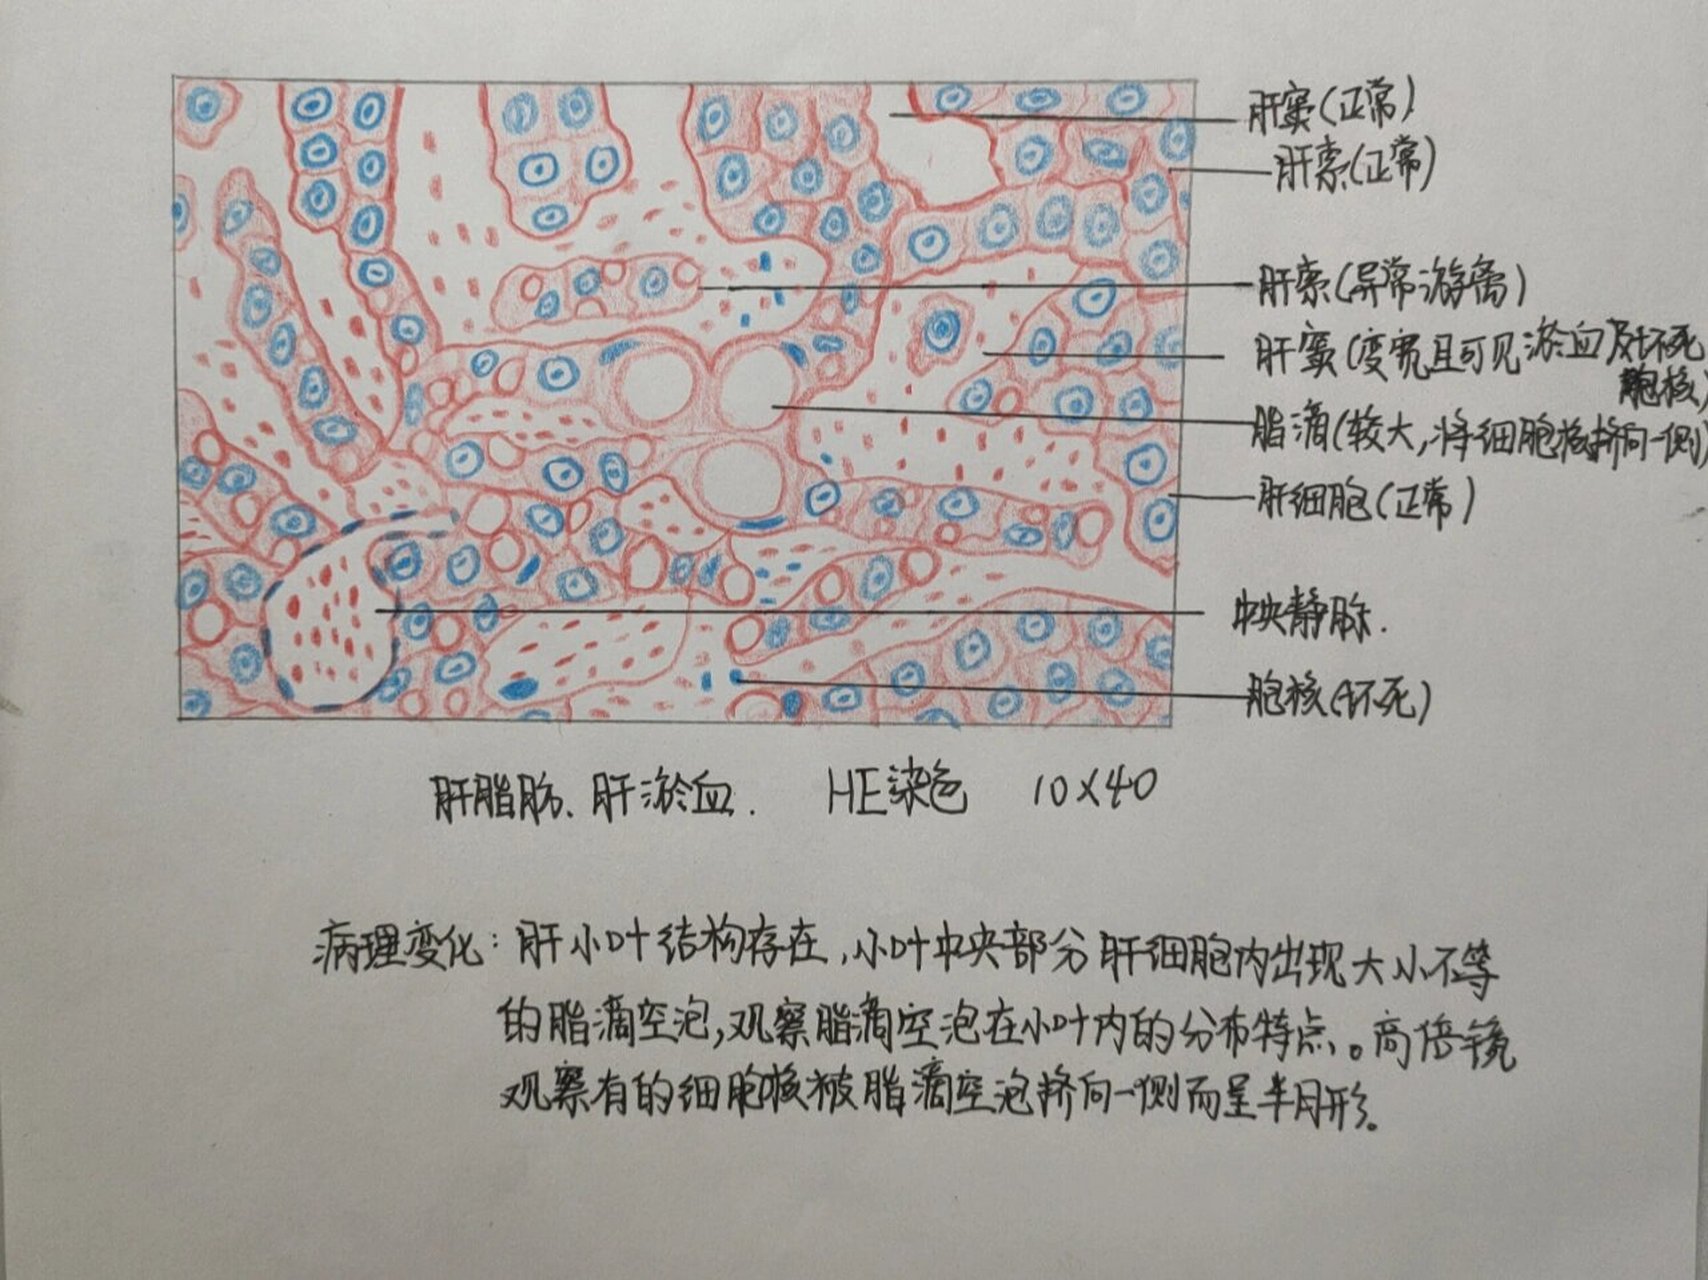 肝窦(正常)
肝索(正常)
肝索(异常游离)
肝窦(变宽且可见淤血及坏死
胞核)
脂滴(较大,将细胞核挤向一侧)
肝细胞(正常)
中央静脉.
胞核(坏死)
肝脂肪、肝淤血. HE染色 10×40
病理变化:肝小叶结构存在,小叶中央部分肝细胞内出现大小不等
的脂滴空泡,观察脂滴空泡在小叶内的分布特点。高倍镜
观察有的细胞核被脂滴空泡挤向一侧而呈半月形。